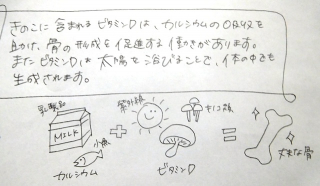 きのこに含まれるビタミンDは、カルシウムの吸収を
助け、骨の形成を促進する働きがあります。
またビタミンDは太陽を浴びることで、体の中でも
生成されます。
乳製品
MILK
小魚
カルシウム
紫外線
キノコ類
ビタミンD
丈夫な骨